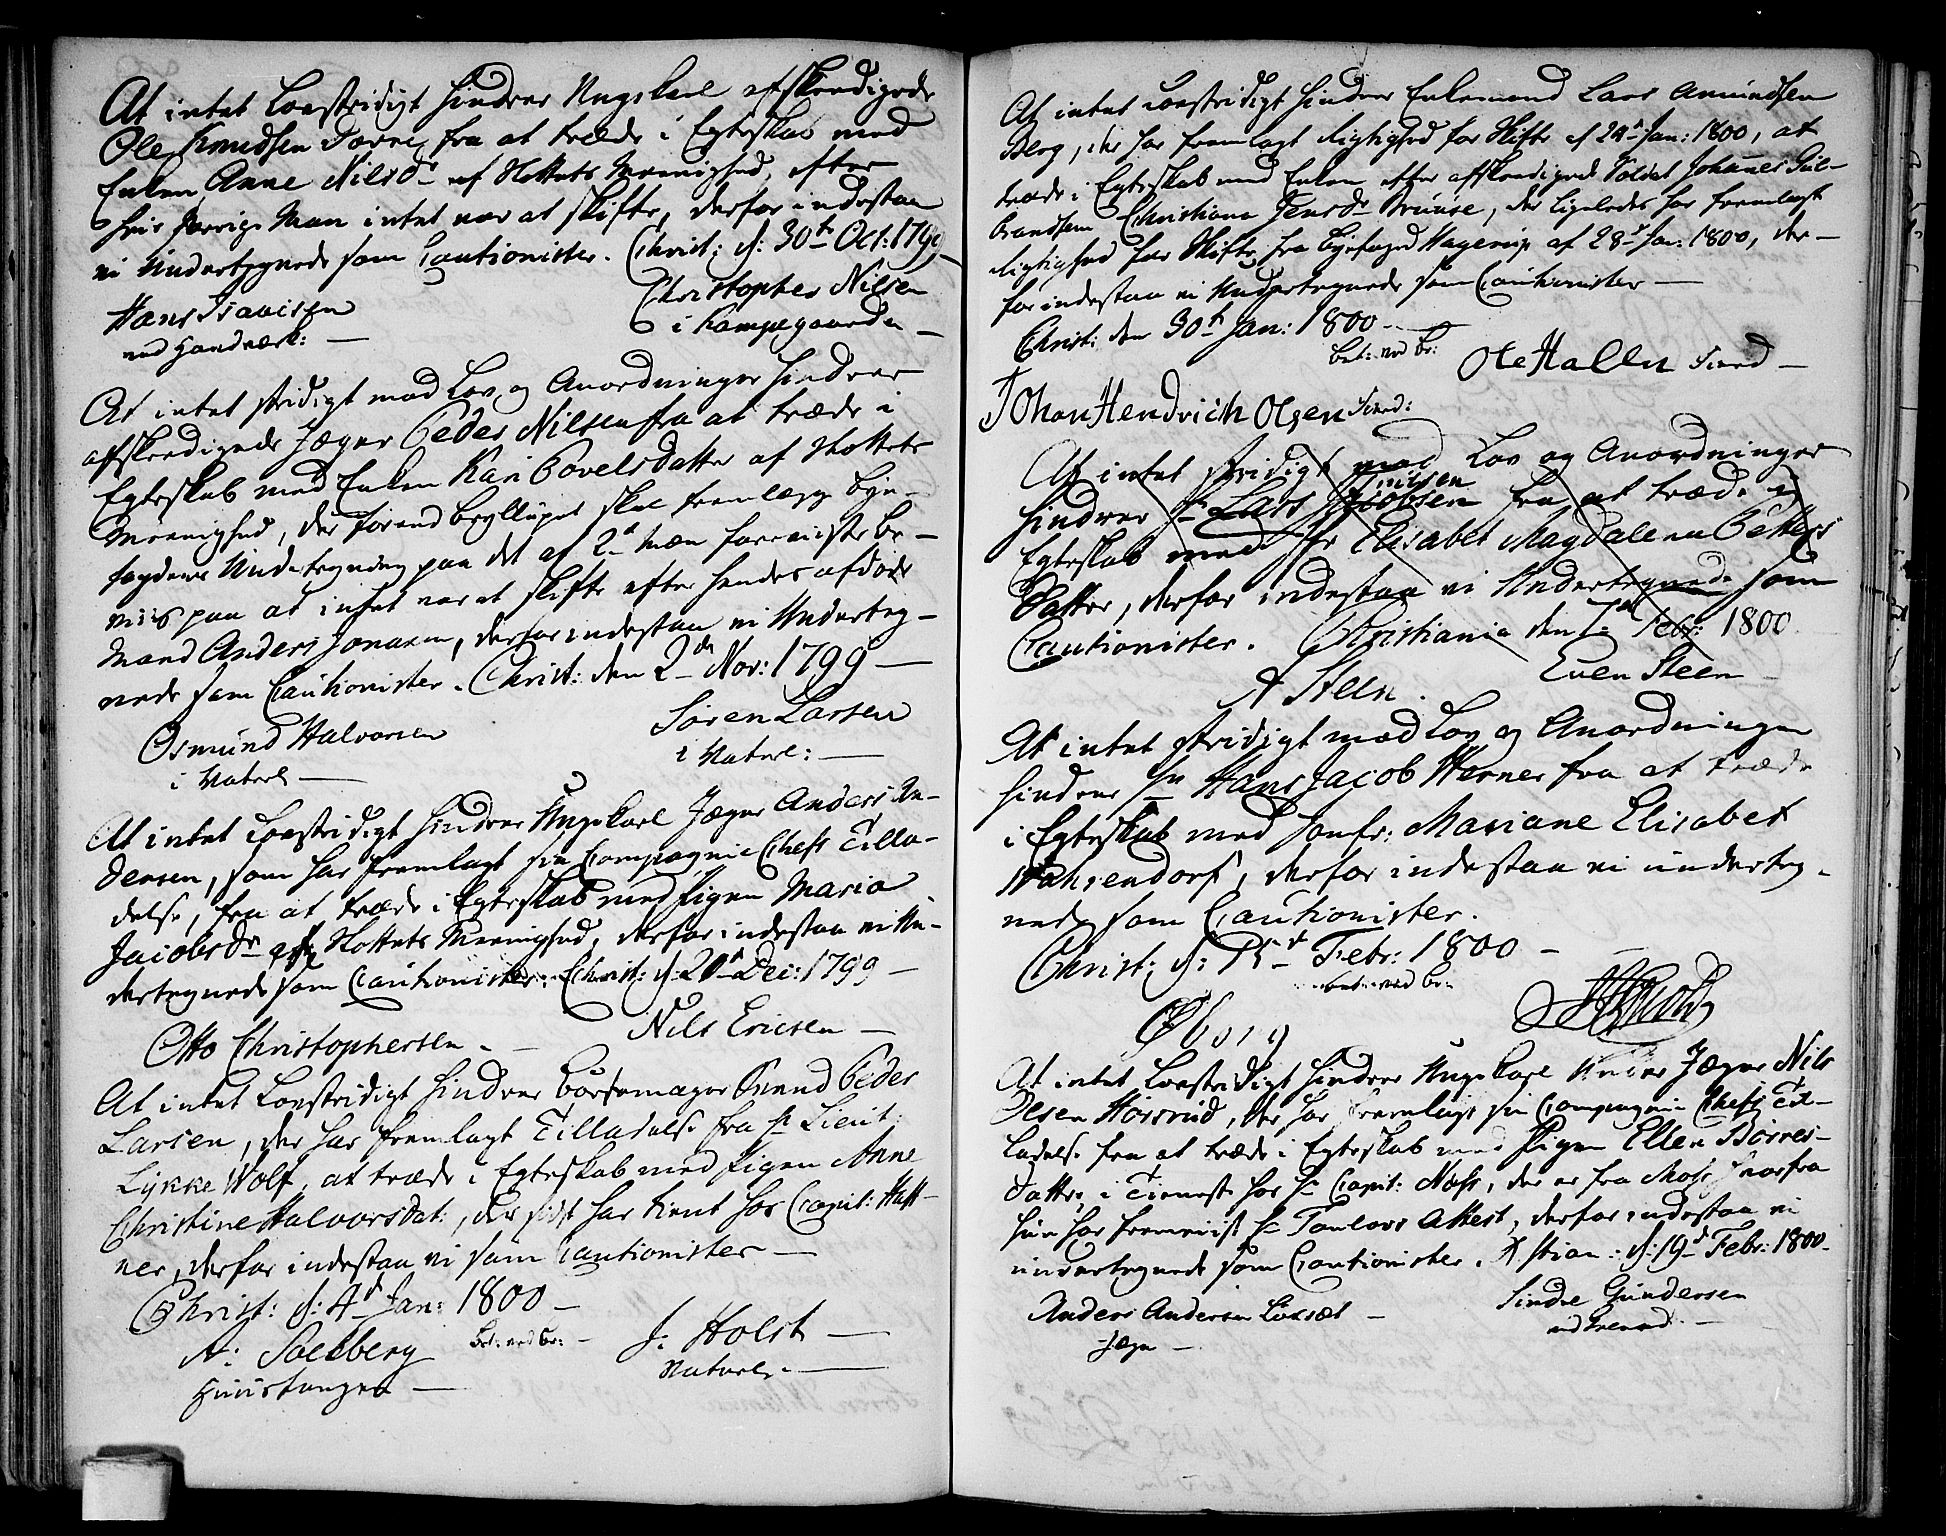 At intet Lovstridigt hindrer Ungekarl afskeedigede
Ole Knudsen Torrie, fra at træde i Egteskab med
Enken Anne Nilsdr af Slottets Meenighed, efter
hvis forrige Man intet var at skifte, derfor indestaa
vi Undertegnede som Cautionister. Christ: d: 30te Oct: 1799
Hans Isaacsen
ved Handværk:
Christopher Nilsen
i Kampegaarden
At intet stridigt mod Lov og Anordninger hindrer
afskeedigede Jæger Peder Nilsen fra at træde i
Egteskab med Enken Kari Povelsdatter af Slottets
Meenighed, der forend Brylluppet skal fremlægge Bye-
fogdens Undertegning paa det af 2de Mæn foreviiste be-
viis paa at intet var at skifte efter hendes afdøde
Mand Anders Jonasen, derfor indestaa vi Underteg-
nede som Cautionister. Christ: den 2den Nov: 1799
Osmund Halvorsen
i Vaterl
Søren Larsen
i Vaterl:
At intet Lovstridigt hindrer Ungekarl Jæger Anders An-
dersen, som har fremlagt sin Compagnie Chefs Tilla-
delse, fra at træde i Egteskab med Pigen Maria
Jacobsdr af Slottets Meenighed, derfor indestaa vi Un-
dertegnede som Cautionister. Christ: d: 20d Dec: 1799
Otto Christophersen
Nils Ericsen
At intet Lovstridigt hindrer Børsemager Svend Peder
Larsen, der har fremlagt Tilladelse fra Hr Lieut:
Lykke Wolf, at træde i Egteskab med Pigen Anne
Christine Halvorsdat:, der sidst har tient hos Capit: Haff-
ner, derfor indestaa vi som Cautionister
Christ: d: 4d Jan: 1800
bet: ved br:
A: Soelberg
Huustangen
J. Holst
Vaterl.
At intet Lovstridigt hindrer Enkemand Lars Amundsen
Berg, der har fremlagt Rigtighed for Skifte af 24d Jan: 1800, at
træde i Egteskab med Enken efter afskeedigede Soldat Johannes Gul-
brandsen Christiana Jensdr Bruuse, der ligeledes har fremlagt
Rigtighed for Skifte fra Byefoged Hagerup af 28d Jan: 1800, der-
for indestaa vi Undertegnede som Cautionister
Christ: den 30te Jan: 1800
bet: ved br:
Ole Hallen
Johan Hendrich Olsen
At intet stridigt mod Lov og Anordninger
hindrer Hr Lars Jacobsen fra at træde i
Egteskab med Jfr Elisabet Magdalena Petters
Datter, derfor indestaa vi Undertegnede som
Cautionister. Christiania den 7de Febr: 1800
A Steen.
Even Steen
At intet stridigt mod Lov og Anordninger
hindrer Hr Hans Jacob Werner fra at træde
i Egteskab med Jomfr: Mariane Elisabet
Wahrendorf, derfor indestaa vi underteg-
nede som Cautionister.
Christ: d: 15d Febr: 1800
bet: ved br:
At intet Lovstridigt hindrer Ungekarl Jæger Nils
Olsen Horsrud, der har fremlagt sin Compagnie Chefs Til-
ladelse fra at træde i Egteskab med Pigen Ellen Børres-
datter, i Tieneste hos Hr Capit: Næss, der er fra Moss hvorfra
hun har foreviist Hr Taulovs Attest, derfor indestaa vi
undertegnede som Cautionister. Xstian: d: 19d Febr: 1800
Anders Andersen
Jæger
Gundersen